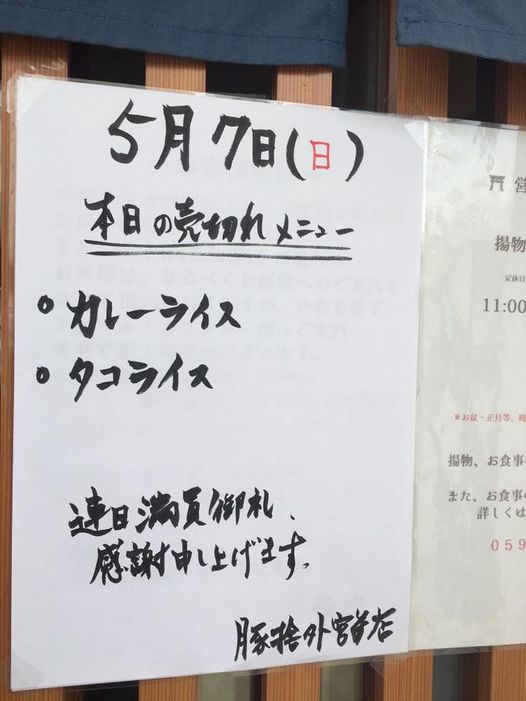 5月7日(日)
本日の売切れメニュー
○ カレーライス
○ タコライス
連日満員御札、
感謝申し上げます。
豚捨外宮前店
営
揚物
定休日
11:00
*お盆・正月等、時
揚物、お食事の
また、お食事の
詳しくは
059